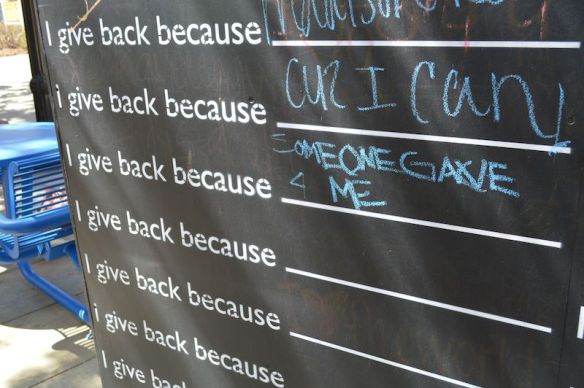 I give back because
i give back because CUZ I Can
I give back because SOMEONE GAVE
4 ME
I give back because
I give back because
i give back because
I give back because